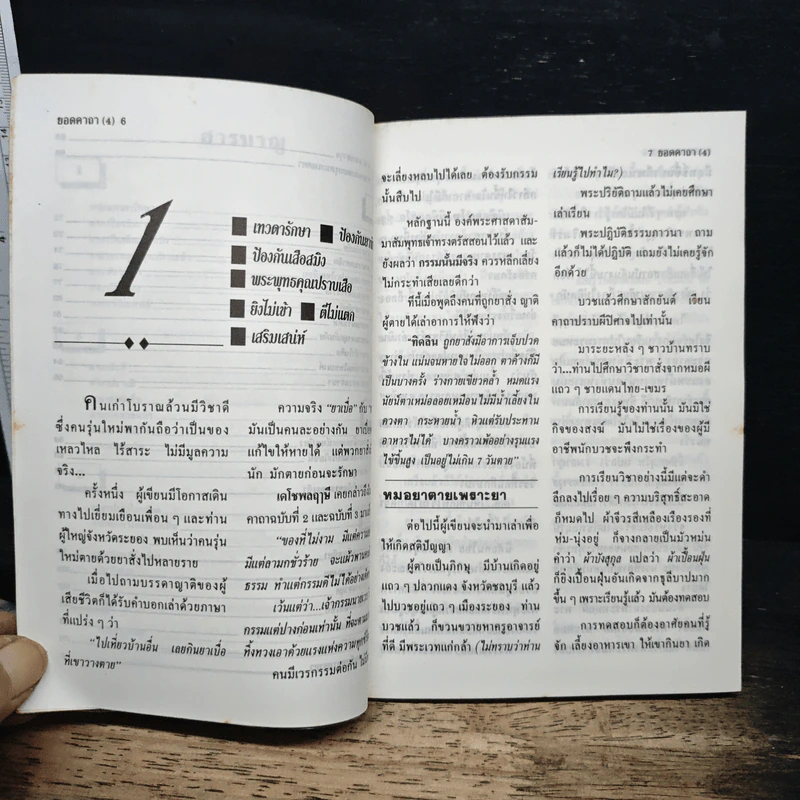 ยอดคาถา (4) 6
1
เทวดารักษา
ป้องกันเสือสมิง
พระพุทธคุณปราบเสือ
ยิงไม่เข้า ตีไม่แตก
เสริมเสน่ห์
คนเก่าโบราณล้วนมีวิชาดี
ซึ่งคนรุ่นใหม่พากันถือว่าเป็นของ
เหลวไหล ไร้สาระ ไม่มีมูลความ
จริง...
ครั้งหนึ่ง ผู้เขียนมีโอกาสเดิน
ทางไปเยี่ยมเยือนเพื่อน ๆ และท่าน
ผู้ใหญ่จังหวัดระยอง พบเห็นว่าคนรุ่น
ใหม่ตายด้วยยาสั่งไปหลายราย
เมื่อไปถามบรรดาญาติของผู้
เสียชีวิตก็ได้รับคำบอกเล่าด้วยภาษา
ที่แปร่ง ๆ ว่า
"ไปเที่ยวบ้านอื่น เลยกินยาเบื่อ
ที่เขาวางตาย"
ความจริง "ยาเบื่อ" กับ
มันเป็นคนละอย่างกัน
แก้ไขให้หายได้ แต่พวกยาสั่ง
นัก มักตายก่อนจะรักษา
เดโชพลฤๅษี เคยกล่าวถึง
คาถาฉบับที่ 2 และฉบับที่ 3
"ของที่ไม่งาม มีแต่ความ
มีแต่ลามกชั่วร้าย จะแผ้วพาน
ธรรม ทำแต่กรรมดีไม่ได้อย่าง
เว้นแต่ว่า...เจ้ากรรมนายเวร
กรรมแต่ปางก่อนเท่านั้น ที่จะ
ทิ้งทวงเอาด้วยแรงแห่งความ
คนมีเวรกรรมต่อกัน
7 ยอดคาถา (4)
จะเลี่ยงหลบไปได้เลย ต้องรับกรรม
นั้นสืบไป
หลักฐานนี้ องค์พระศาสดาสัม-
มาสัมพุทธเจ้าทรงตรัสสอนไว้แล้ว และ
ยังผลว่า กรรมนั้นมีจริง ควรหลีกเลี่ยง
ไม่กระทำเสียเลยดีกว่า
ทีนี้เมื่อพูดถึงคนที่ถูกยาสั่ง ญาติ
ผู้ตายได้เล่าอาการให้ฟังว่า
"ทิดลิน ถูกยาสั่งมีอาการเจ็บปวด
ข้างใน แน่นจนหายใจไม่ออก ตาค้างก็มี
เป็นบางครั้ง ร่างกายเขียวคล้ำ หมดแรง
นัยน์ตาเหม่อลอยเหมือนไม่มีน้ำเลี้ยงใน
ดวงตา กระหายน้ำ หิวแต่รับประทาน
อาหารไม่ได้ บางคราวเพ้ออย่างรุนแรง
ไข้ขึ้นสูง เป็นอยู่ไม่เกิน 7 วันตาย"
หมอยาตายเพราะยา
ต่อไปนี้ผู้เขียนจะนำมาเล่าเพื่อ
ให้เกิดสติปัญญา
ผู้ตายเป็นภิกษุ มีบ้านเกิดอยู่
แถว ๆ ปลวกแดง จังหวัดชลบุรี แล้ว
ไปบวชอยู่แถว ๆ เมืองระยอง ท่าน
บวชแล้ว ก็ขวนขวายหาครูอาจารย์
ที่ดี มีพระเวทแก่กล้า (ไม่ทราบว่าท่าน
เรียนรู้ไปทำไม?)
พระปริยัติถามแล้วไม่เคยศึกษา
เล่าเรียน
พระปฏิบัติธรรมภาวนา ถาม
แล้วก็ไม่ได้ปฏิบัติ แถมยังไม่เคยรู้จัก
อีกด้วย
บวชแล้วศึกษาสักยันต์ เรียน
คาถาปราบผีปีศาจไปเท่านั้น
มาระยะหลัง ๆ ชาวบ้านทราบ
ว่า...ท่านไปศึกษาวิชายาสั่งจากหมอผี
แถว ๆ ชายแดนไทย-เขมร
การเรียนรู้ของท่านนั้น มันมิใช่
กิจของสงฆ์ มันไม่ใช่เรื่องของผู้มี
อาชีพนักบวชจะพึงกระทำ
การเรียนวิชาอย่างนี้มีแต่จะดำ
ดิ่งลงไปเรื่อย ๆ ความบริสุทธิ์สะอาด
ก็หมดไป ผ้าจีวรสีเหลืองเรืองรองที่
ห่ม-นุ่งอยู่ ก็จางกลายเป็นมัวหม่น
คำว่า ผ้าบังสุกุล แปลว่า ผ้าเปื้อนฝุ่น
ก็ยิ่งเปื้อนฝุ่นอันเกิดจากธุลีบาปมาก
ขึ้น ๆ เพราะเรียนรู้แล้ว มันต้องทดสอบ
การทดสอบก็ต้องอาศัยคนที่รู้
จัก เลี้ยงอาหารเขา ให้เขากินยา เกิด